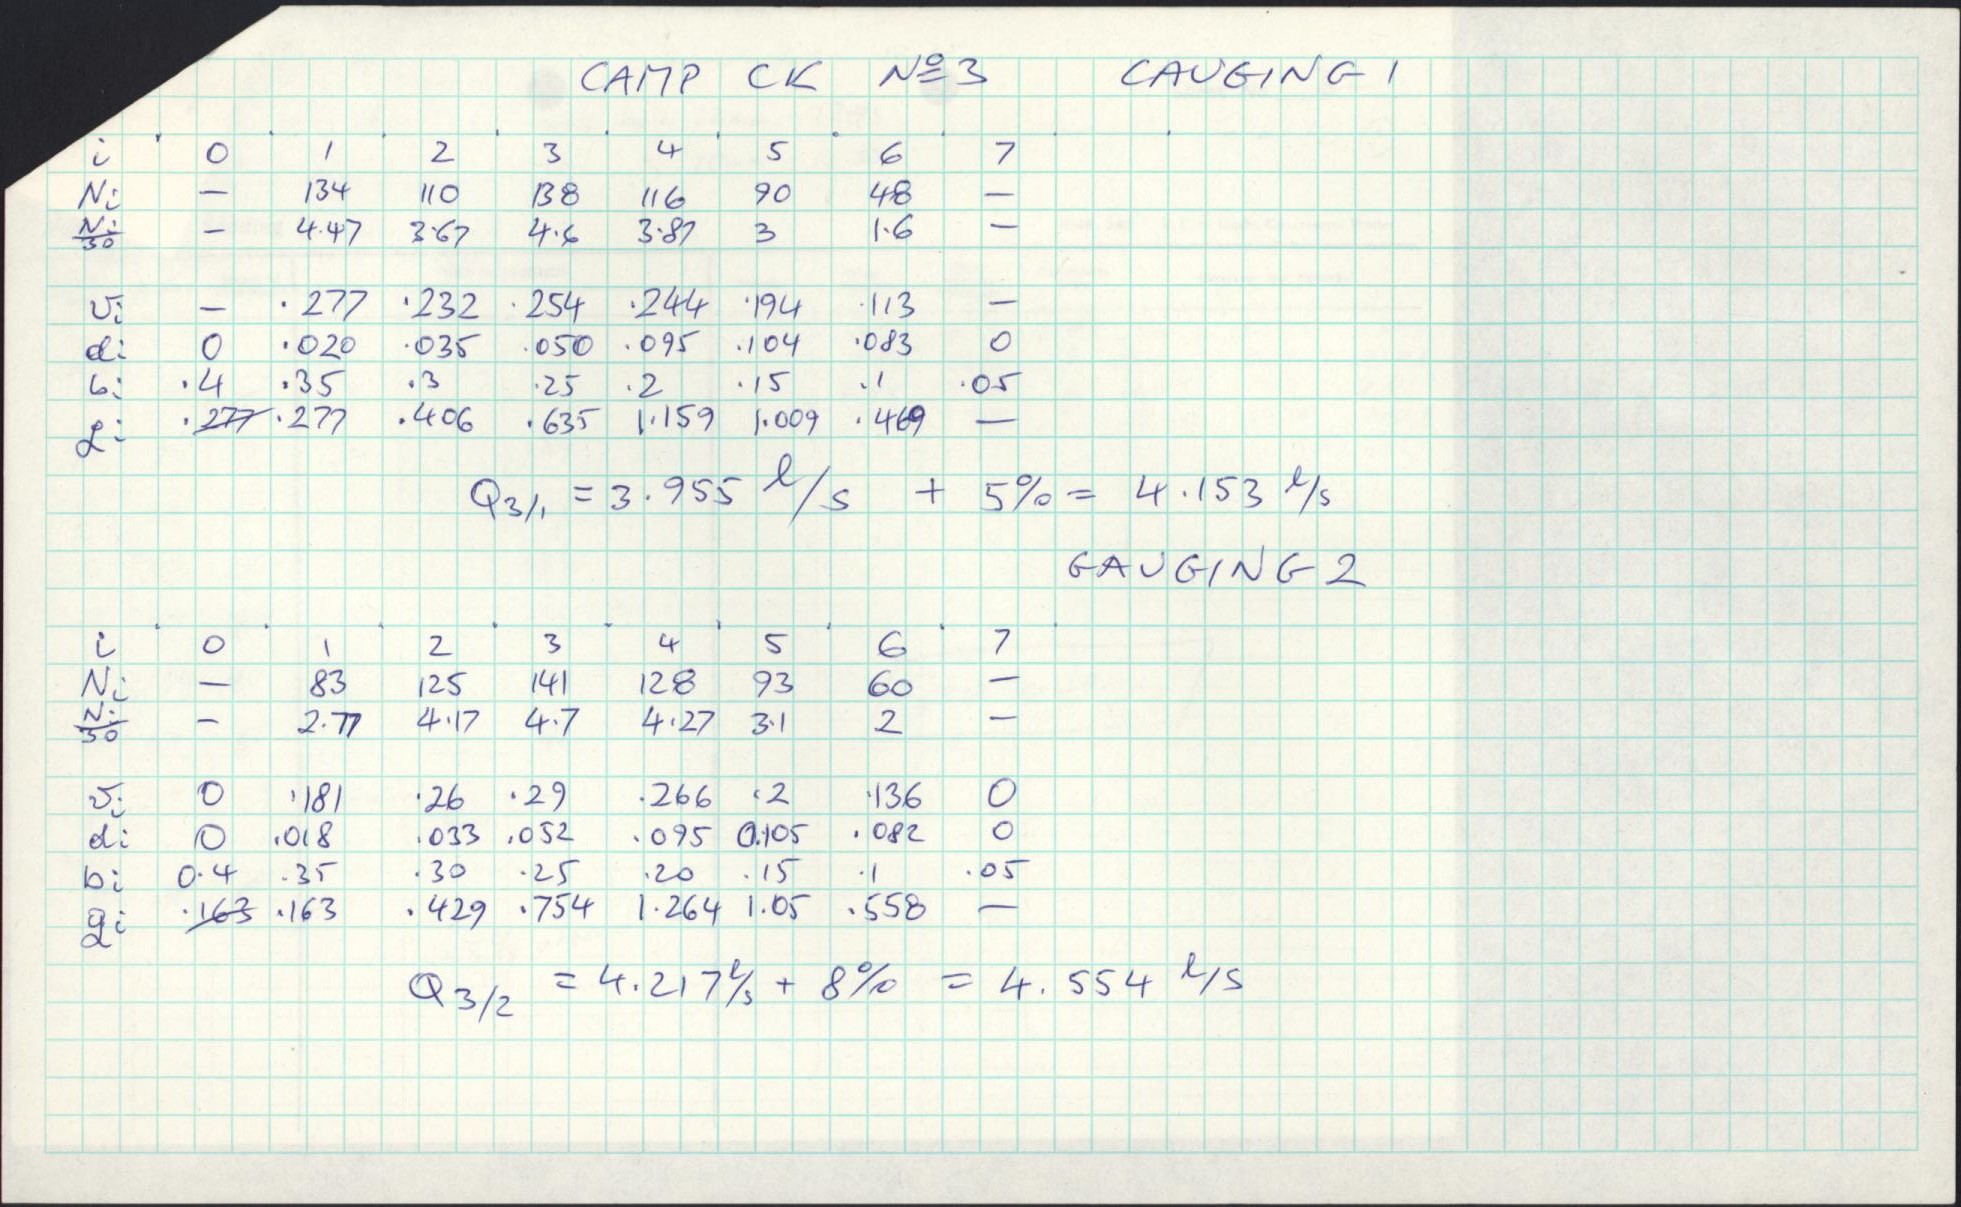 CAMP CK Nº 3 GAUGING 1
i 0 1 2 3 4 5 6 7
Ni — 134 110 138 116 90 48 —
Ni/30 — 4.47 3.67 4.6 3.87 3 1.6 —
vi — .277 .232 .254 .244 .194 .113 —
di 0 .020 .035 .050 .095 .104 .083 0
bi .4 .35 .3 .25 .2 .15 .1 .05
qi .277 .277 .406 .635 1.159 1.009 .469 —
Q3/1 = 3.955 l/s + 5% = 4.153 l/s
GAUGING 2
i 0 1 2 3 4 5 6 7
Ni — 83 125 141 128 93 60 —
Ni/30 — 2.77 4.17 4.7 4.27 3.1 2 —
vi 0 .181 .26 .29 .266 .2 .136 0
di 0 .018 .033 .052 .095 0.105 .082 0
bi 0.4 .35 .30 .25 .20 .15 .1 .05
qi .163 .163 .429 .754 1.264 1.05 .558 —
Q3/2 = 4.217 l/s + 8% = 4.554 l/s